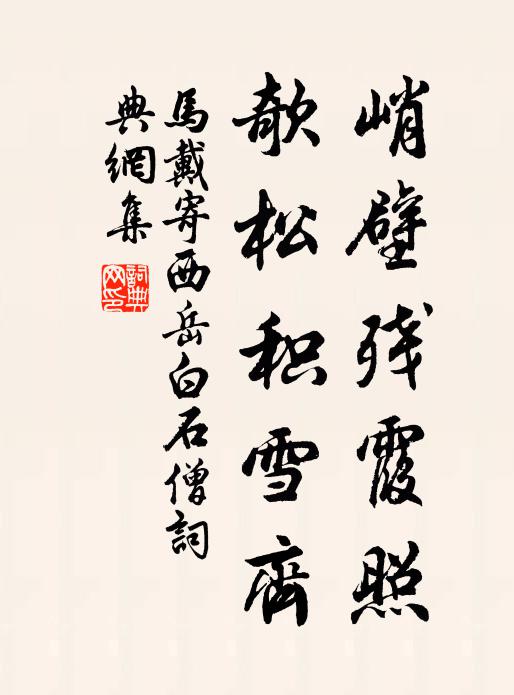 峭壁残霞照
欹松积雪齊
馬戴寄西岳白石僧詞
典網集
詞典网印